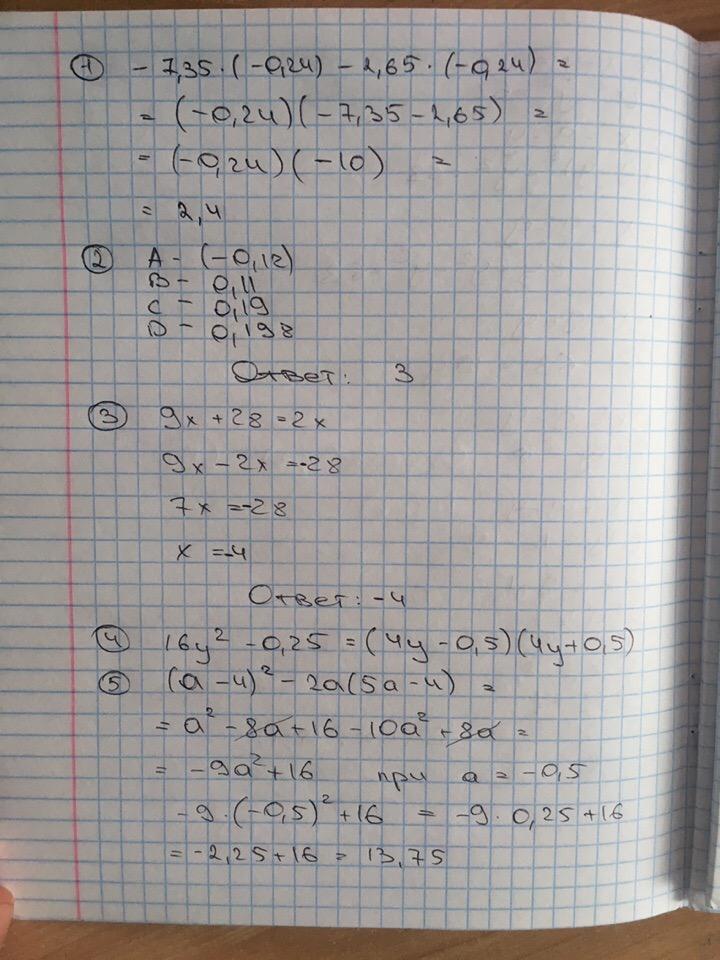 1 - 7,35 · (-0,24) - 2,65 · (-0,24) =
= (-0,24)(-7,35-2,65) =
= (-0,24)(-10) =
= 2,4
2 A - (-0,12)
B - 0,11
C - 0,19
D - 0,198
Ответ: 3
3 9x + 28 = 2x
9x - 2x = -28
7x = -28
x = -4
Ответ: -4
4 16y² - 0,25 = (4y - 0,5)(4y + 0,5)
5 (a - 4)² - 2a(5a - 4) =
= a² - 8a + 16 - 10a² + 8a =
= -9a² + 16 при a = -0,5
-9 · (-0,5)² + 16 = -9 · 0,25 + 16
= -2,25 + 16 = 13,75